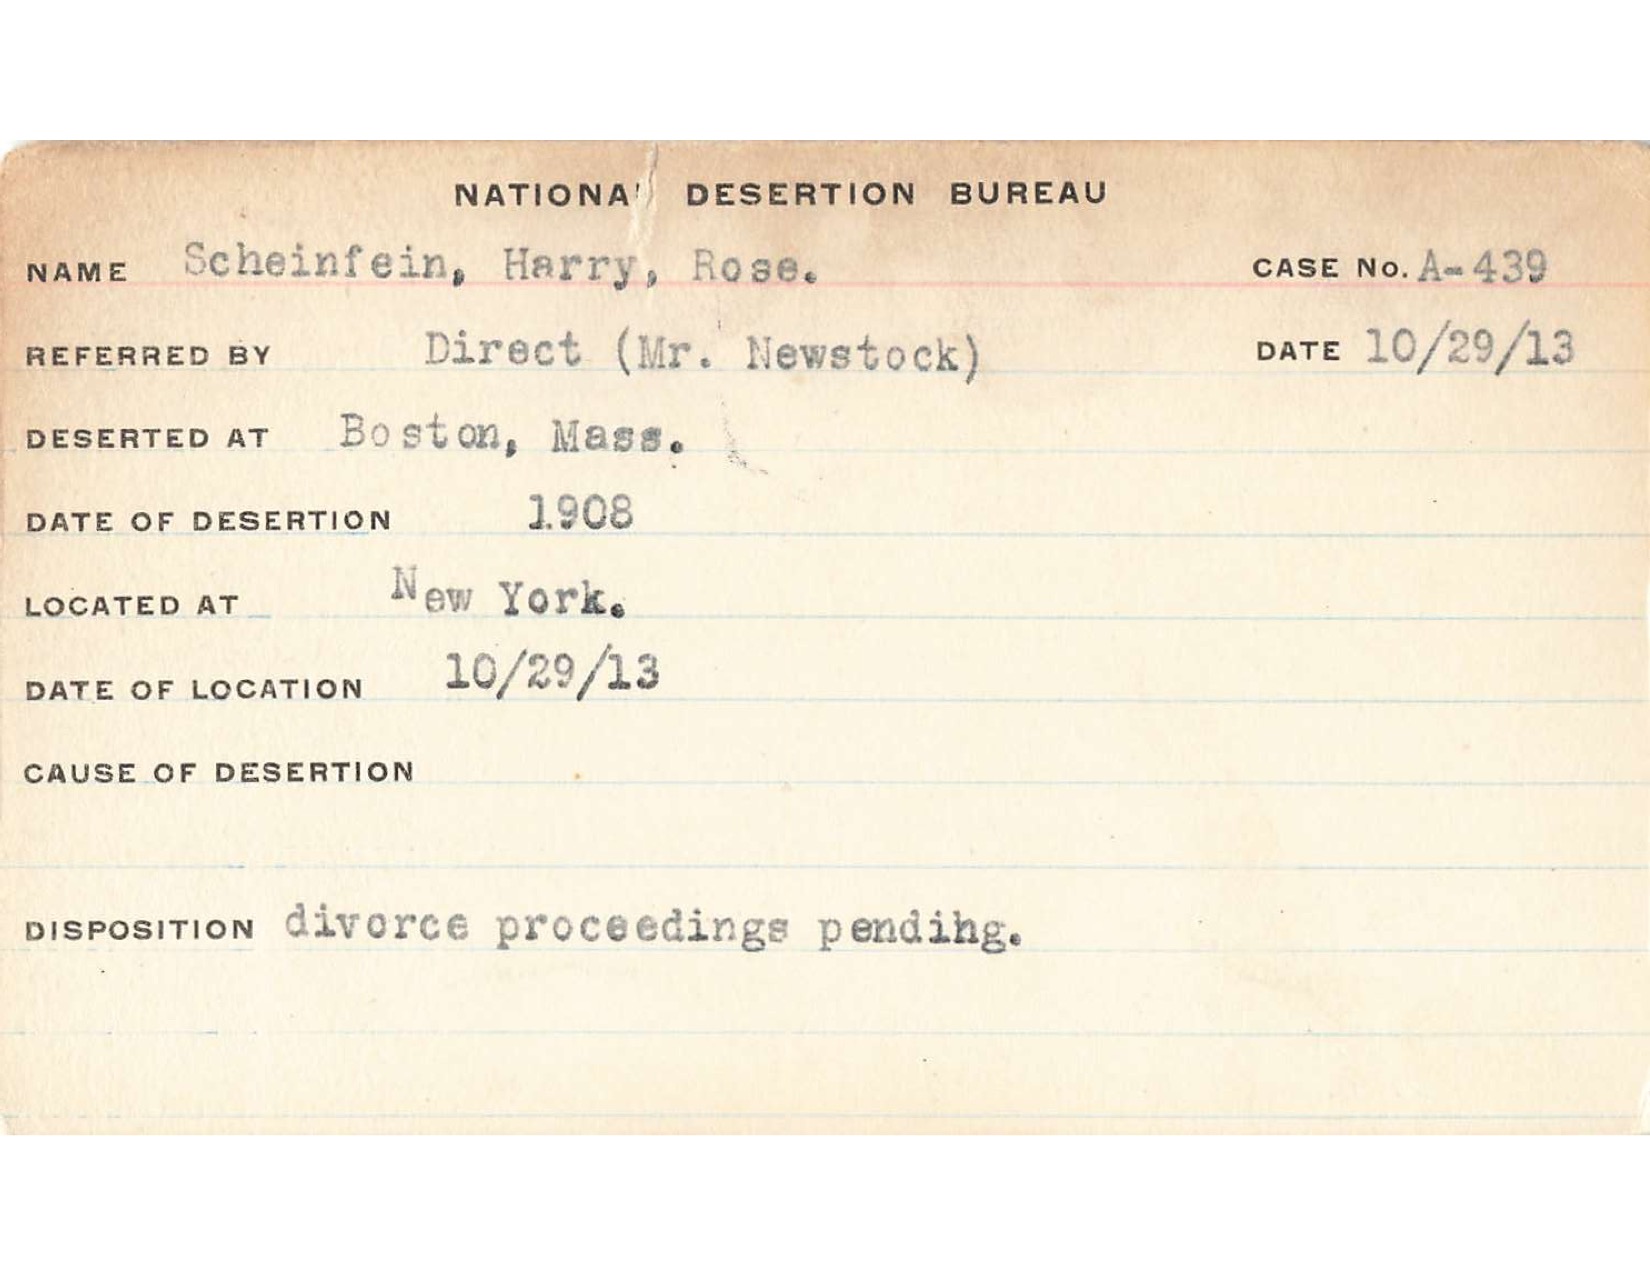 NATIONAL DESERTION BUREAU
NAME Scheinfein, Harry, Rose. CASE No. A-439
REFERRED BY Direct (Mr. Newstock) DATE 10/29/13
DESERTED AT Boston, Mass.
DATE OF DESERTION 1908
LOCATED AT New York.
DATE OF LOCATION 10/29/13
CAUSE OF DESERTION
DISPOSITION divorce proceedings pendihg.